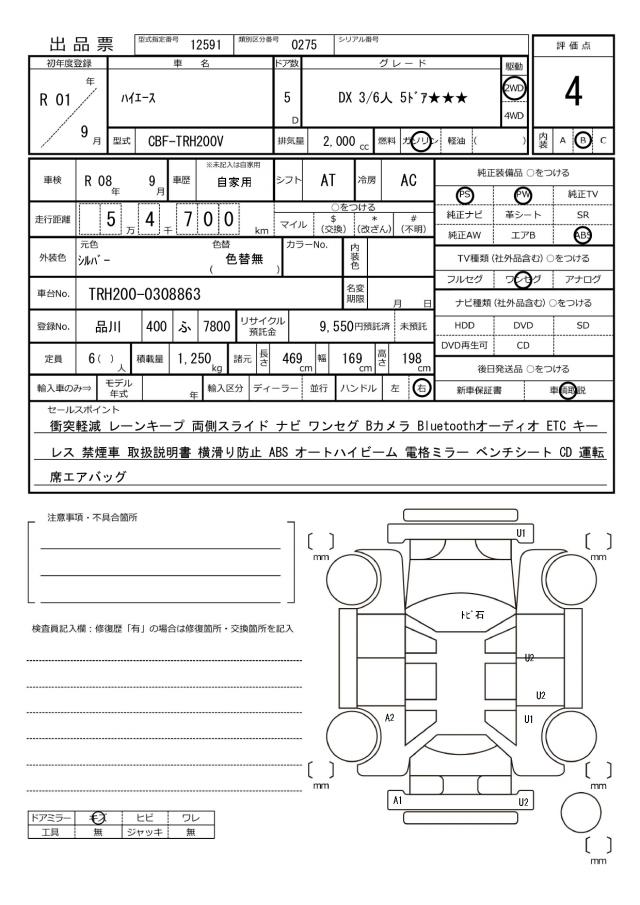 出 品 票
型式指定番号 12591 類別区分番号 0275 シリアル番号
評 価 点
4
初年度登録 車 名 ドア数 グ レ ー ド 駆動
R 01 年
9 月
ﾊｲｴｰｽ 5 D DX 3/6人 5ﾄﾞｱ★★★ 2WD
4WD
型式 CBF-TRH200V 排気量 2,000 cc 燃料 ガソリン 軽油 ( )
内装 A B C
車検 R 08 年 9 月 車歴 ※未記入は自家用 自家用 シフト AT 冷房 AC
純正装備品 ○をつける
PS PW 純正TV
純正ナビ 革シート SR
純正AW エアB ABS
走行距離 5 万 4 千 7 0 0 km
○をつける
マイル $(交換) *(改ざん) #(不明)
外装色 元色 ｼﾙﾊﾞｰ 色替 ( 色替無 ) カラーNo. 内装色
TV種類 (社外品含む) ○をつける
フルセグ ワンセグ アナログ
車台No. TRH200-0308863 名変期限 月 日
ナビ種類 (社外品含む) ○をつける
HDD DVD SD
DVD再生可 CD
登録No. 品川 400 ふ 7800 リサイクル預託金 9,550円預託済 未預託
定員 6 ( ) 人 積載量 1,250 kg 諸元 長さ 469 cm 幅 169 cm 高さ 198 cm
後日発送品 ○をつける
新車保証書 車輌取説
輸入車のみ⇒ モデル年式 年 輸入区分 ディーラー 並行 ハンドル 左 右
セールスポイント
衝突軽減 レーンキープ 両側スライド ナビ ワンセグ Bカメラ Bluetoothオーディオ ETC キー
レス 禁煙車 取扱説明書 横滑り防止 ABS オートハイビーム 電格ミラー ベンチシート CD 運転
席エアバッグ
注意事項・不具合箇所
検査員記入欄：修復歴「有」の場合は修復箇所・交換箇所を記入
U1
mm
mm
ﾄﾋﾞ石
U2
U2
A2
U1
mm
mm
A1
U2
mm
ドアミラー キズ ヒビ ワレ
工具 無 ジャッキ 無